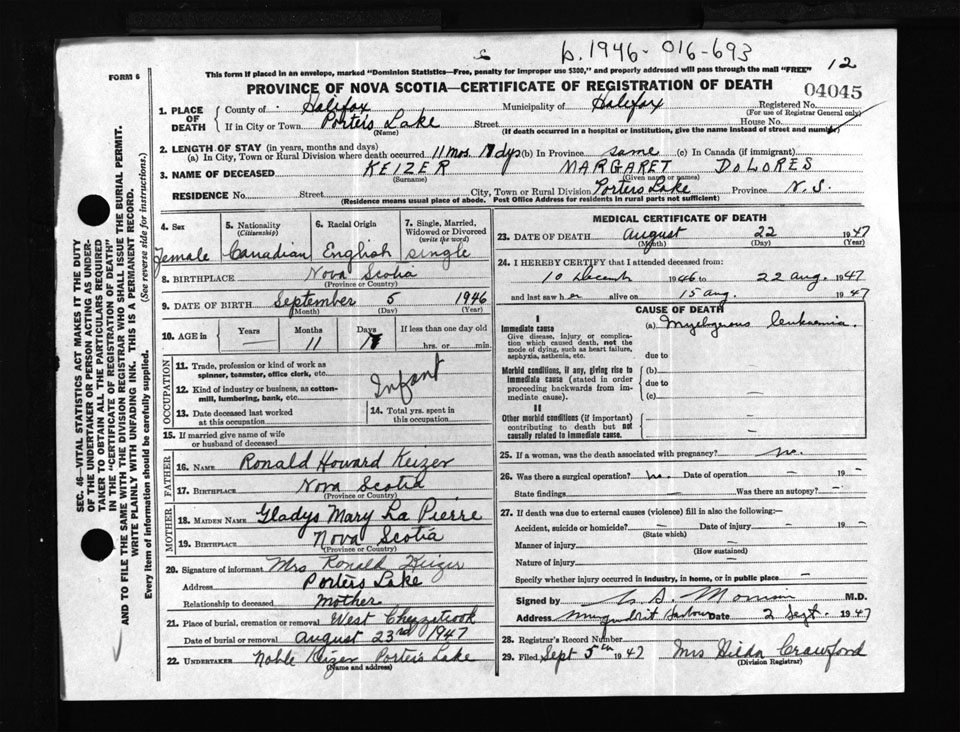 b. 1946-016-693
12
This form if placed in an envelope, marked "Dominion Statistics—Free, penalty for improper use $300," and properly addressed will pass through the mail "FREE"
FORM 6
PROVINCE OF NOVA SCOTIA—CERTIFICATE OF REGISTRATION OF DEATH
04045
1. PLACE OF DEATH County of Halifax Municipality of Halifax Registered No.
(For use of Registrar General only)
If in City or Town Porters Lake Street House No.
(Name) (If death occurred in a hospital or institution, give the name instead of street and number)
2. LENGTH OF STAY (in years, months and days)
(a) In City, Town or Rural Division where death occurred 11 mos. dys (b) In Province same (c) In Canada (if immigrant)
3. NAME OF DECEASED KEIZER MARGARET DOLORES
(Surname) (Given name or names)
RESIDENCE No. Street City, Town or Rural Division Porters Lake Province N.S.
(Residence means usual place of abode. Post Office Address for residents in rural parts not sufficient)
4. Sex
Female
5. Nationality
(Citizenship)
Canadian
6. Racial Origin
English
7. Single, Married,
Widowed or Divorced
(write the word)
single
8. BIRTHPLACE Nova Scotia
(Province or Country)
9. DATE OF BIRTH September 5 1946
(Month) (Day) (Year)
10. AGE in Years Months Days If less than one day old
11 hrs. or min.
OCCUPATION
11. Trade, profession or kind of work as
spinner, teamster, office clerk, etc.
12. Kind of industry or business, as cotton-
mill, lumbering, bank, etc.
Infant
13. Date deceased last worked
at this occupation
14. Total yrs. spent in
this occupation
15. If married give name of wife
or husband of deceased
FATHER
16. NAME Ronald Howard Keizer
17. BIRTHPLACE Nova Scotia
(Province or Country)
MOTHER
18. MAIDEN NAME Gladys Mary La Pierre
19. BIRTHPLACE Nova Scotia
(Province or Country)
20. Signature of informant Mrs Ronald Keizer
Address Porters Lake
Relationship to deceased Mother
21. Place of burial, cremation or removal West Chezzetcook
Date of burial or removal August 23rd 1947
22. UNDERTAKER Noble Keizer Porters Lake
(Name and address)
MEDICAL CERTIFICATE OF DEATH
23. DATE OF DEATH August 22 1947
(Month) (Day) (Year)
24. I HEREBY CERTIFY that I attended deceased from:
10 Decemb 1946 to 22 Aug. 1947
and last saw her alive on 15 Aug. 1947
CAUSE OF DEATH
I
Immediate cause (a) Myelogenous leukaemia.
Give disease, injury or complica-
tion which caused death, not the
mode of dying, such as heart failure,
asphyxia, asthenia, etc.
due to
Morbid conditions, if any, giving rise to
immediate cause (stated in order
proceeding backwards from im-
mediate cause).
(b)
due to
(c)
II
Other morbid conditions (if important)
contributing to death but not
causally related to immediate cause.
25. If a woman, was the death associated with pregnancy? no.
26. Was there a surgical operation? no. Date of operation — 19 —
State findings Was there an autopsy? —
27. If death was due to external causes (violence) fill in also the following:—
Accident, suicide or homicide? — Date of injury — 19 —
(State which)
Manner of injury
(How sustained)
Nature of injury
Specify whether injury occurred in industry, in home, or in public place —
Signed by M.D.
Address Musquodoboit Harbour Date 2 Sept. 1947
28. Registrar's Record Number
29. Filed Sept 5th 1947 Mrs Hilda Crawford
(Division Registrar)
SEC. 46—VITAL STATISTICS ACT MAKES IT THE DUTY
OF THE UNDERTAKER OR PERSON ACTING AS UNDER-
TAKER TO OBTAIN ALL THE PARTICULARS REQUIRED
IN THE "CERTIFICATE OF REGISTRATION OF DEATH"
AND TO FILE THE SAME WITH THE DIVISION REGISTRAR WHO SHALL ISSUE THE BURIAL PERMIT.
WRITE PLAINLY WITH UNFADING INK. THIS IS A PERMANENT RECORD.
Every item of information should be carefully supplied. (See reverse side for instructions.)